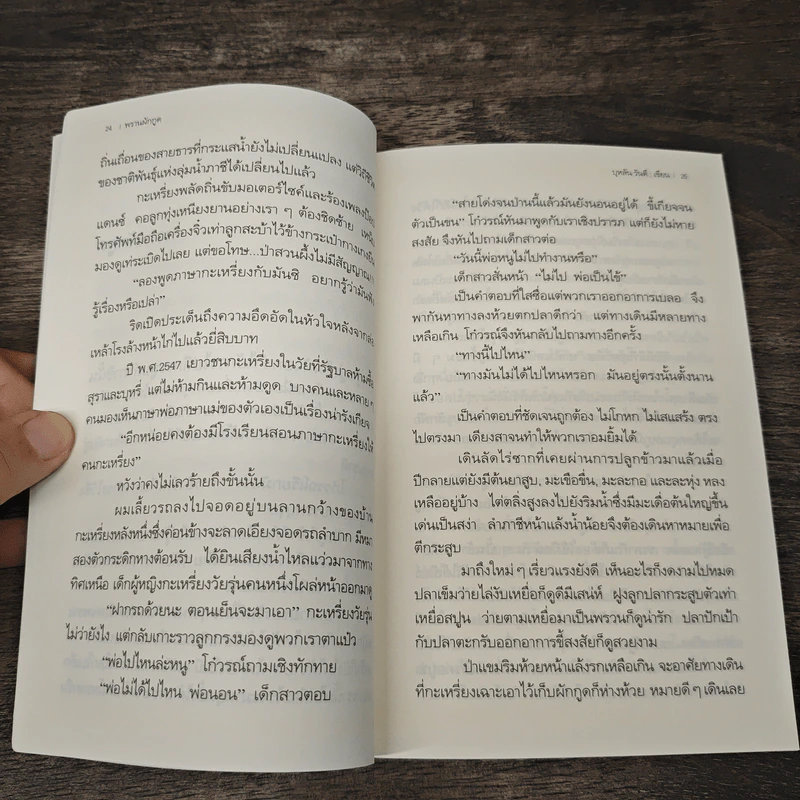 24 | พรานผักกูด
ถิ่นเถื่อนของสายธารที่กระแสน้ำยังไม่เปลี่ยนแปลง แต่วิถีชีวิต
ของชาติพันธุ์แห่งลุ่มน้ำภาชีได้เปลี่ยนไปแล้ว
กะเหรี่ยงพลัดถิ่นขับมอเตอร์ไซค์และร้องเพลงป๊อป
แดนซ์ คอลูกทุ่งเหนียงยานอย่างเรา ๆ ต้องชิดซ้าย
โทรศัพท์มือถือเครื่องจิ๋วเท่าลูกสะบ้าไว้ข้างกระเป๋ากางเกงยีน
มองดูเท่ระเบิดไปเลย แต่ขอโทษ...ป่าสวนผึ้งไม่มีสัญญาณ
“ลองพูดภาษากะเหรี่ยงกับมันซิ อยากรู้ว่ามันฟัง
รู้เรื่องหรือเปล่า”
ริดเปิดประเด็นถึงความอึดอัดในหัวใจหลังจาก
เหล้าโรงล้างหน้าไก่ไปแล้วยี่สิบบาท
ปี พ.ศ.2547 เยาวชนกะเหรี่ยงในวัยที่รัฐบาลห้ามซื้อ
สุราและบุหรี่ แต่ไม่ห้ามกินและห้ามดูด บางคนและหลาย ๆ
คนมองเห็นภาษาพ่อภาษาแม่ของตัวเองเป็นเรื่องน่ารังเกียจ
“อีกหน่อยคงต้องมีโรงเรียนสอนภาษากะเหรี่ยงให้
คนกะเหรี่ยง”
หวังว่าคงไม่เลวร้ายถึงขั้นนั้น
ผมเลี้ยวรถลงไปจอดอยู่บนลานกว้างของบ้าน
กะเหรี่ยงหลังหนึ่งซึ่งค่อนข้างจะลาดเอียงจอดรถลำบาก มีหมา
สองตัวกระดิกหางต้อนรับ ได้ยินเสียงน้ำไหลแว่วมาจากทาง
ทิศเหนือ เด็กผู้หญิงกะเหรี่ยงวัยรุ่นคนหนึ่งโผล่หน้าออกมาดู
“ฝากรถด้วยนะ ตอนเย็นจะมาเอา” กะเหรี่ยงวัยรุ่น
ไม่ว่ายังไง แต่กลับเกาะราวลูกกรงมองดูพวกเราตาแป๋ว
“พ่อไปไหนล่ะหนู” โก๋วรณ์ถามเชิงทักทาย
“พ่อไม่ได้ไปไหน พ่อนอน” เด็กสาวตอบ
บุหลัน วันดี : เขียน | 25
“สายโด่งจนป่านนี้แล้วมันยังนอนอยู่ได้ ขี้เกียจจน
ตัวเป็นขน” โก๋วรณ์หันมาพูดกับเราเชิงปรารภ แต่ก็ยังไม่หาย
สงสัย จึงหันไปถามเด็กสาวต่อ
“วันนี้พ่อหนูไม่ไปทำงานหรือ”
เด็กสาวสั่นหน้า “ไม่ไป พ่อเป็นไข้”
เป็นคำตอบที่ใสซื่อแต่พวกเราออกอาการเบลอ จึง
พากันหาทางลงห้วยตกปลาดีกว่า แต่ทางเดินมีหลายทาง
เหลือเกิน โก๋วรณ์จึงหันกลับไปถามทางอีกครั้ง
“ทางนี้ไปไหน”
“ทางมันไม่ได้ไปไหนหรอก มันอยู่ตรงนั้นตั้งนาน
แล้ว”
เป็นคำตอบที่ชัดเจนถูกต้อง ไม่โกหก ไม่เสแสร้ง ตรง
ไปตรงมา เดียงสาจนทำให้พวกเราอมยิ้มได้
เดินลัดไร่ซากที่เคยผ่านการปลูกข้าวมาแล้วเมื่อ
ปีกลายแต่ยังมีต้นยาสูบ, มะเขือขื่น, มะละกอ และละหุ่ง หลง
เหลืออยู่บ้าง ไต่ตลิ่งสูงลงไปยังริมน้ำซึ่งมีมะเดื่อต้นใหญ่ขึ้น
เด่นเป็นสง่า ลำภาชีหน้าแล้งน้ำน้อยจึงต้องเดินหาหมายเพื่อ
ตีกระสูบ
มาถึงใหม่ ๆ เรี่ยวแรงยังดี เห็นอะไรก็งดงามไปหมด
ปลาเข็มว่ายไล่งับเหยื่อก็ดูดีมีเสน่ห์ ฝูงลูกปลากระสูบตัวเท่า
เหยื่อสปูน ว่ายตามเหยื่อมาเป็นพรวนก็ดูน่ารัก ปลาปักเป้า
กับปลาตะกรับออกอาการขี้สงสัยก็ดูสวยงาม
ป่าแขมริมห้วยหน้าแล้งรกเหลือเกิน จะอาศัยทางเดิน
ที่กะเหรี่ยงเฉาะเอาไว้เก็บผักกูดก็ห่างห้วย หมายดี ๆ เดินเลย